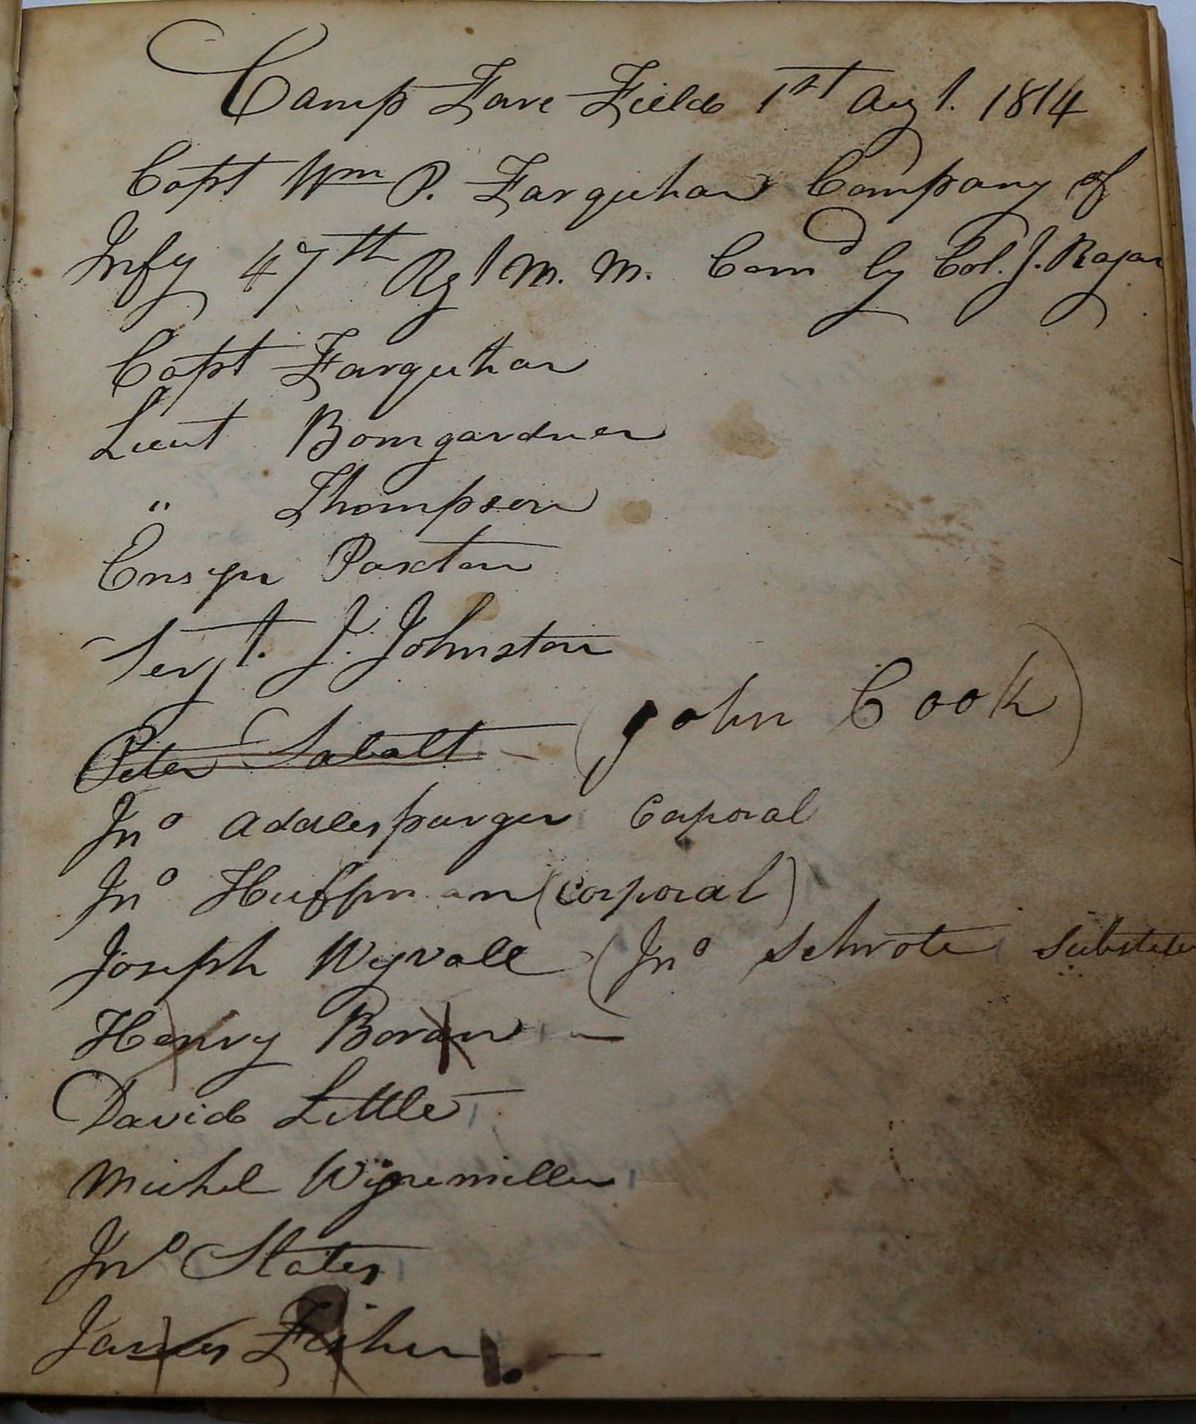 Camp Fare Field 1st Augt. 1814
Capt Wm P. Farquhar Company of
Infy 47th Rgt M. M. Comd by Col. J. Ragan
Capt Farquhar
Lieut Bomgardner
" Thompson
Ensign Paxton
Sergt. J. Johnston
Peter Sabalt - (John Cook)
Jno Addlesparger Caporal
Jno Huffman (Corporal)
Joseph Wyvall (Jno Schrote Substitute
Henry Boran -
David Little
Michel Winemiller
Jno States
James Fisher -